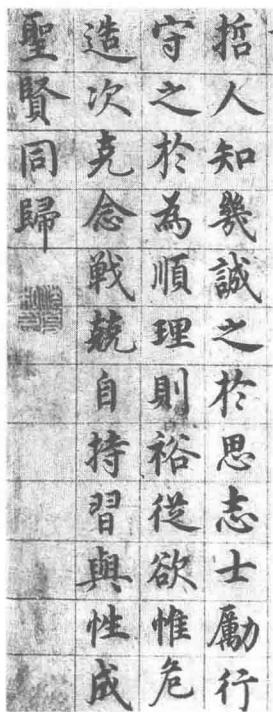 哲人知幾誠之於思志士勵行
守之於為順理則裕從欲惟危
造次克念戰兢自持習與性成
聖賢同歸